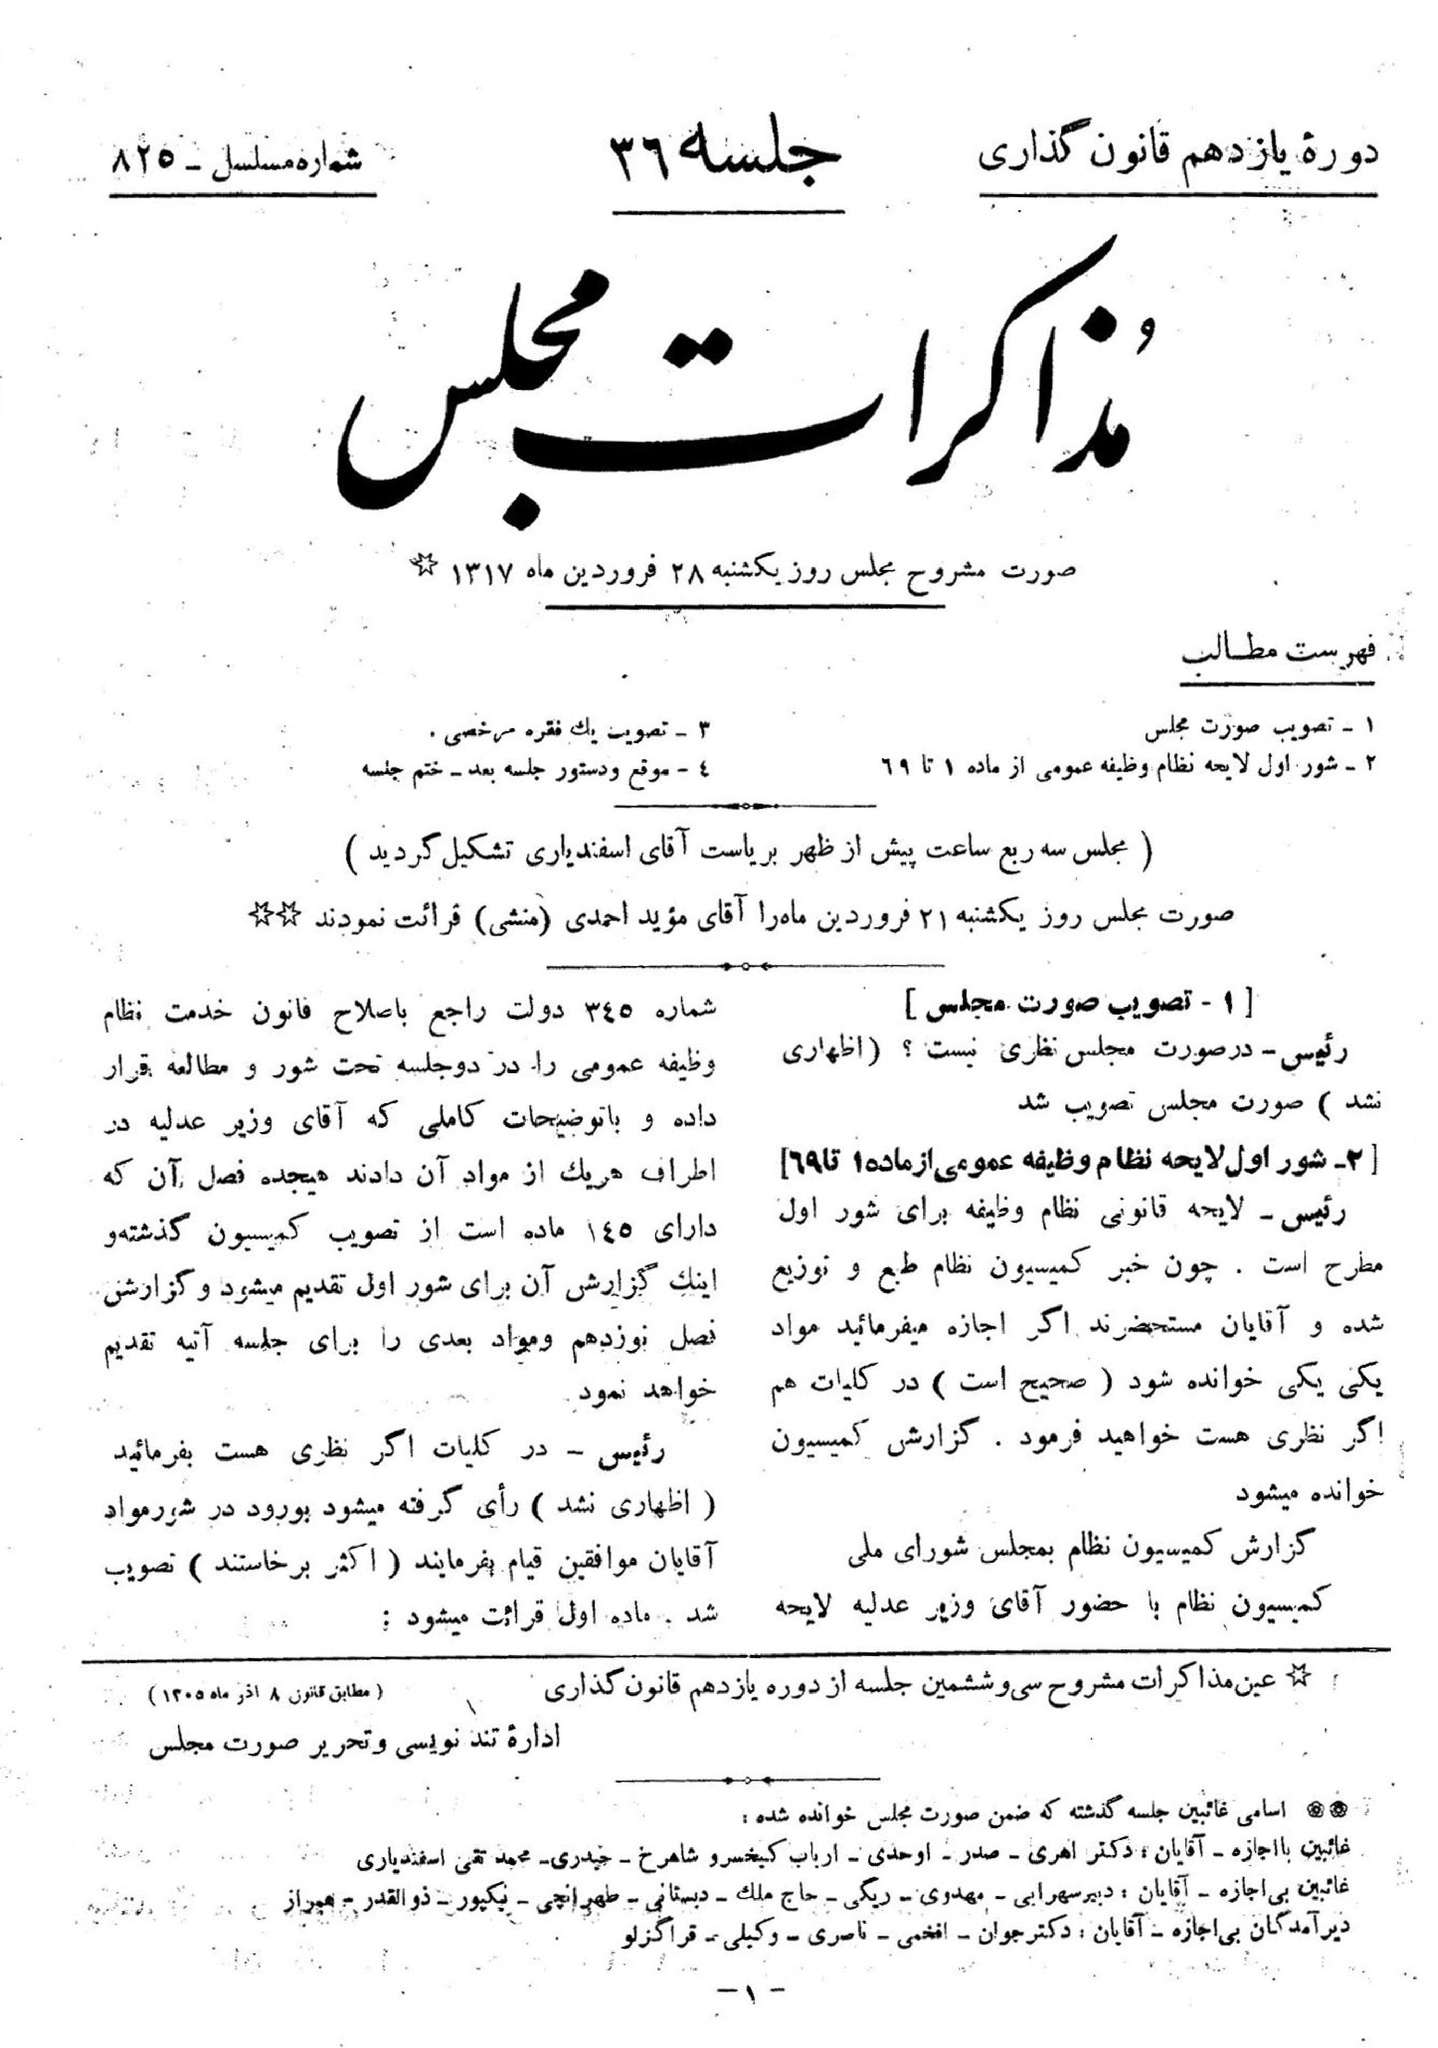 دورهٔ یازدهم قانون گذاری
جلسه ۳٦
شماره مسلسل ـ ۸۲٥
مُذاکرات مجلس
صورت مشروح مجلس روز یکشنبه ۲۸ فروردین ماه ۱۳۱۷ ☆
فهرست مطالب
۱ ـ تصویب صورت مجلس
۲ ـ شور اول لایحه نظام وظیفه عمومی از ماده ۱ تا ٦۹
۳ ـ تصویب یك فقره مرخصی .
٤ - موقع ودستور جلسه بعد ـ ختم جلسه
( مجلس سه ربع ساعت پیش از ظهر بریاست آقای اسفندیاری تشکیل گردید )
صورت مجلس روز یکشنبه ۲۱ فروردین ماه را آقای مؤید احمدی (منشی) قرائت نمودند ☆☆
[ ۱ - تصویب صورت مجلس ]
رئیس ـ درصورت مجلس نظری نیست ؟ ( اظهاری
نشد ) صورت مجلس تصویب شد
[ ۲ـ شور اول لایحه نظام وظیفه عمومی از ماده ۱ تا ٦۹]
رئیس ـ لایحه قانونی نظام وظیفه برای شور اول
مطرح است . چون خبر کمیسیون نظام طبع و توزیع
شده و آقایان مستحضرند اگر اجازه میفرمائید مواد
یکی یکی خوانده شود ( صحیح است ) در کلیات هم
اگر نظری هست خواهید فرمود . گزارش کمیسیون
خوانده میشود
گزارش کمیسیون نظام بمجلس شورای ملی
کمیسیون نظام با حضور آقای وزیر عدلیه لایحه
شماره ۳٤٥ دولت راجع باصلاح قانون خدمت نظام
وظیفه عمومی را در دوجلسه تحت شور و مطالعه قرار
داده و باتوضیحات کاملی که آقای وزیر عدلیه در
اطراف هریك از مواد آن دادند هیجده فصل آن که
دارای ۱٤٥ ماده است از تصویب کمیسیون گذشته و
اینك گزارش آن برای شور اول تقدیم میشود و گزارش
فصل نوزدهم ومواد بعدی را برای جلسه آتیه تقدیم
خواهد نمود
رئیس ـ در کلیات اگر نظری هست بفرمائید
( اظهاری نشد ) رأی گرفته میشود بورود در شورمواد
آقایان موافقین قیام بفرمایند ( اکثر برخاستند ) تصویب
شد . ماده اول قرائت میشود :
☆ عین مذاکرات مشروح سی و ششمین جلسه از دوره یازدهم قانون گذاری
( مطابق قانون ۸ آذر ماه ۱۳۰٥ )
ادارهٔ تند نویسی و تحریر صورت مجلس
❀❀ اسامی غائبین جلسه گذشته که ضمن صورت مجلس خوانده شده :
غائبین با اجازه ـ آقایان : دکتر اهری ـ صدر ـ اوحدی ـ ارباب کیخسرو شاهرخ ـ حیدری ـ محمد تقی اسفندیاری
غائبین بی اجازه ـ آقایان : دبیرسهرابی ـ مهدوی ـ ریگی ـ حاج ملك ـ دبستانی ـ طهرانچی ـ نیکپور ـ ذوالقدر ـ همراز
دیرآمدگان بی اجازه ـ آقایان : دکترجوان ـ افخمی ـ ناصری ـ وکیلی ـ قراگزلو
- ۱ -